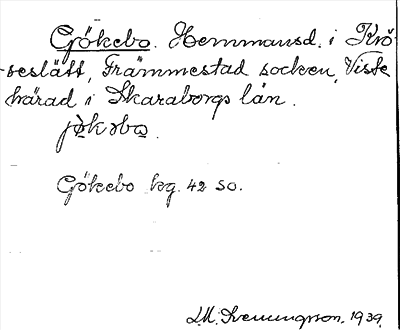 Gökebo. Hemmansd. i Krö-
seslätt, Främmestad socken, Viste
härad i Skaraborgs län.
jökɔba.
Gökebo kg. 42 SO.
Svenungsson. 1939.